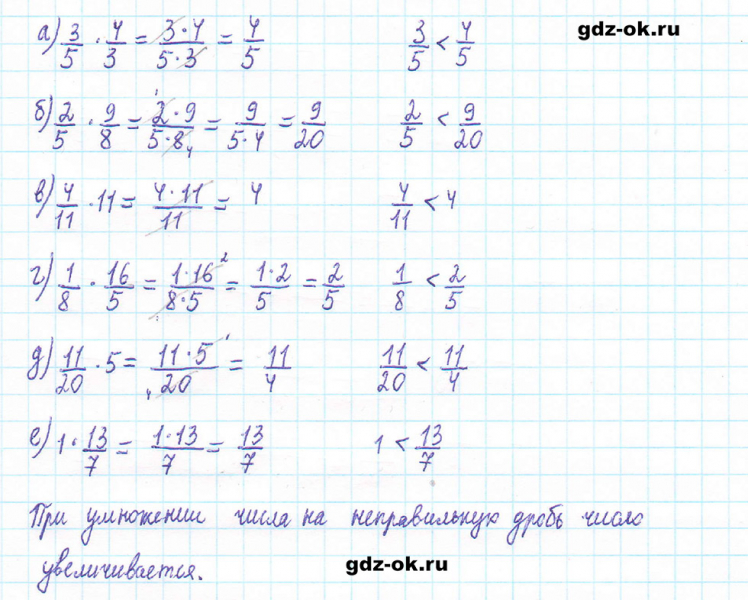 gdz-ok.ru
а) 3/5 · 4/3 = 3·4/5·3 = 4/5 3/5 < 4/5
б) 2/5 · 9/8 = 2·9/5·8 1 4 = 9/5·4 = 9/20 2/5 < 9/20
в) 4/11 · 11 = 4·11/11 = 4 4/11 < 4
г) 1/8 · 16/5 = 1·16/8·5 2 = 1·2/5 = 2/5 1/8 < 2/5
д) 11/20 · 5 = 11·5/20 1 4 = 11/4 11/20 < 11/4
е) 1 · 13/7 = 1·13/7 = 13/7 1 < 13/7
При умножении числа на неправильную дробь число
увеличивается.
gdz-ok.ru